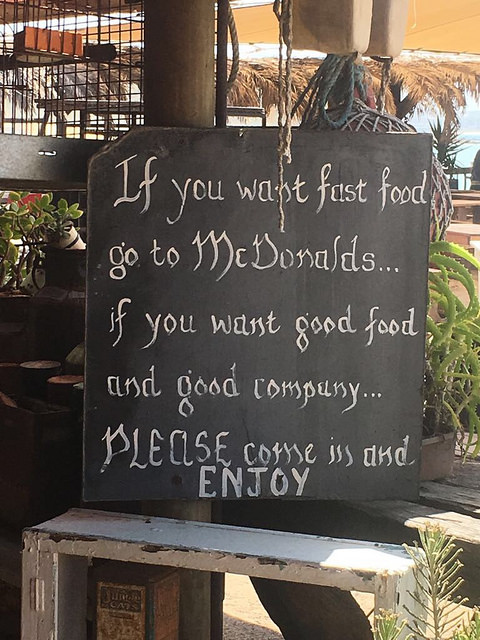 If you want fast food
go to McDonalds...
if you want good food
and good company...
PLEASE come in and
ENJOY